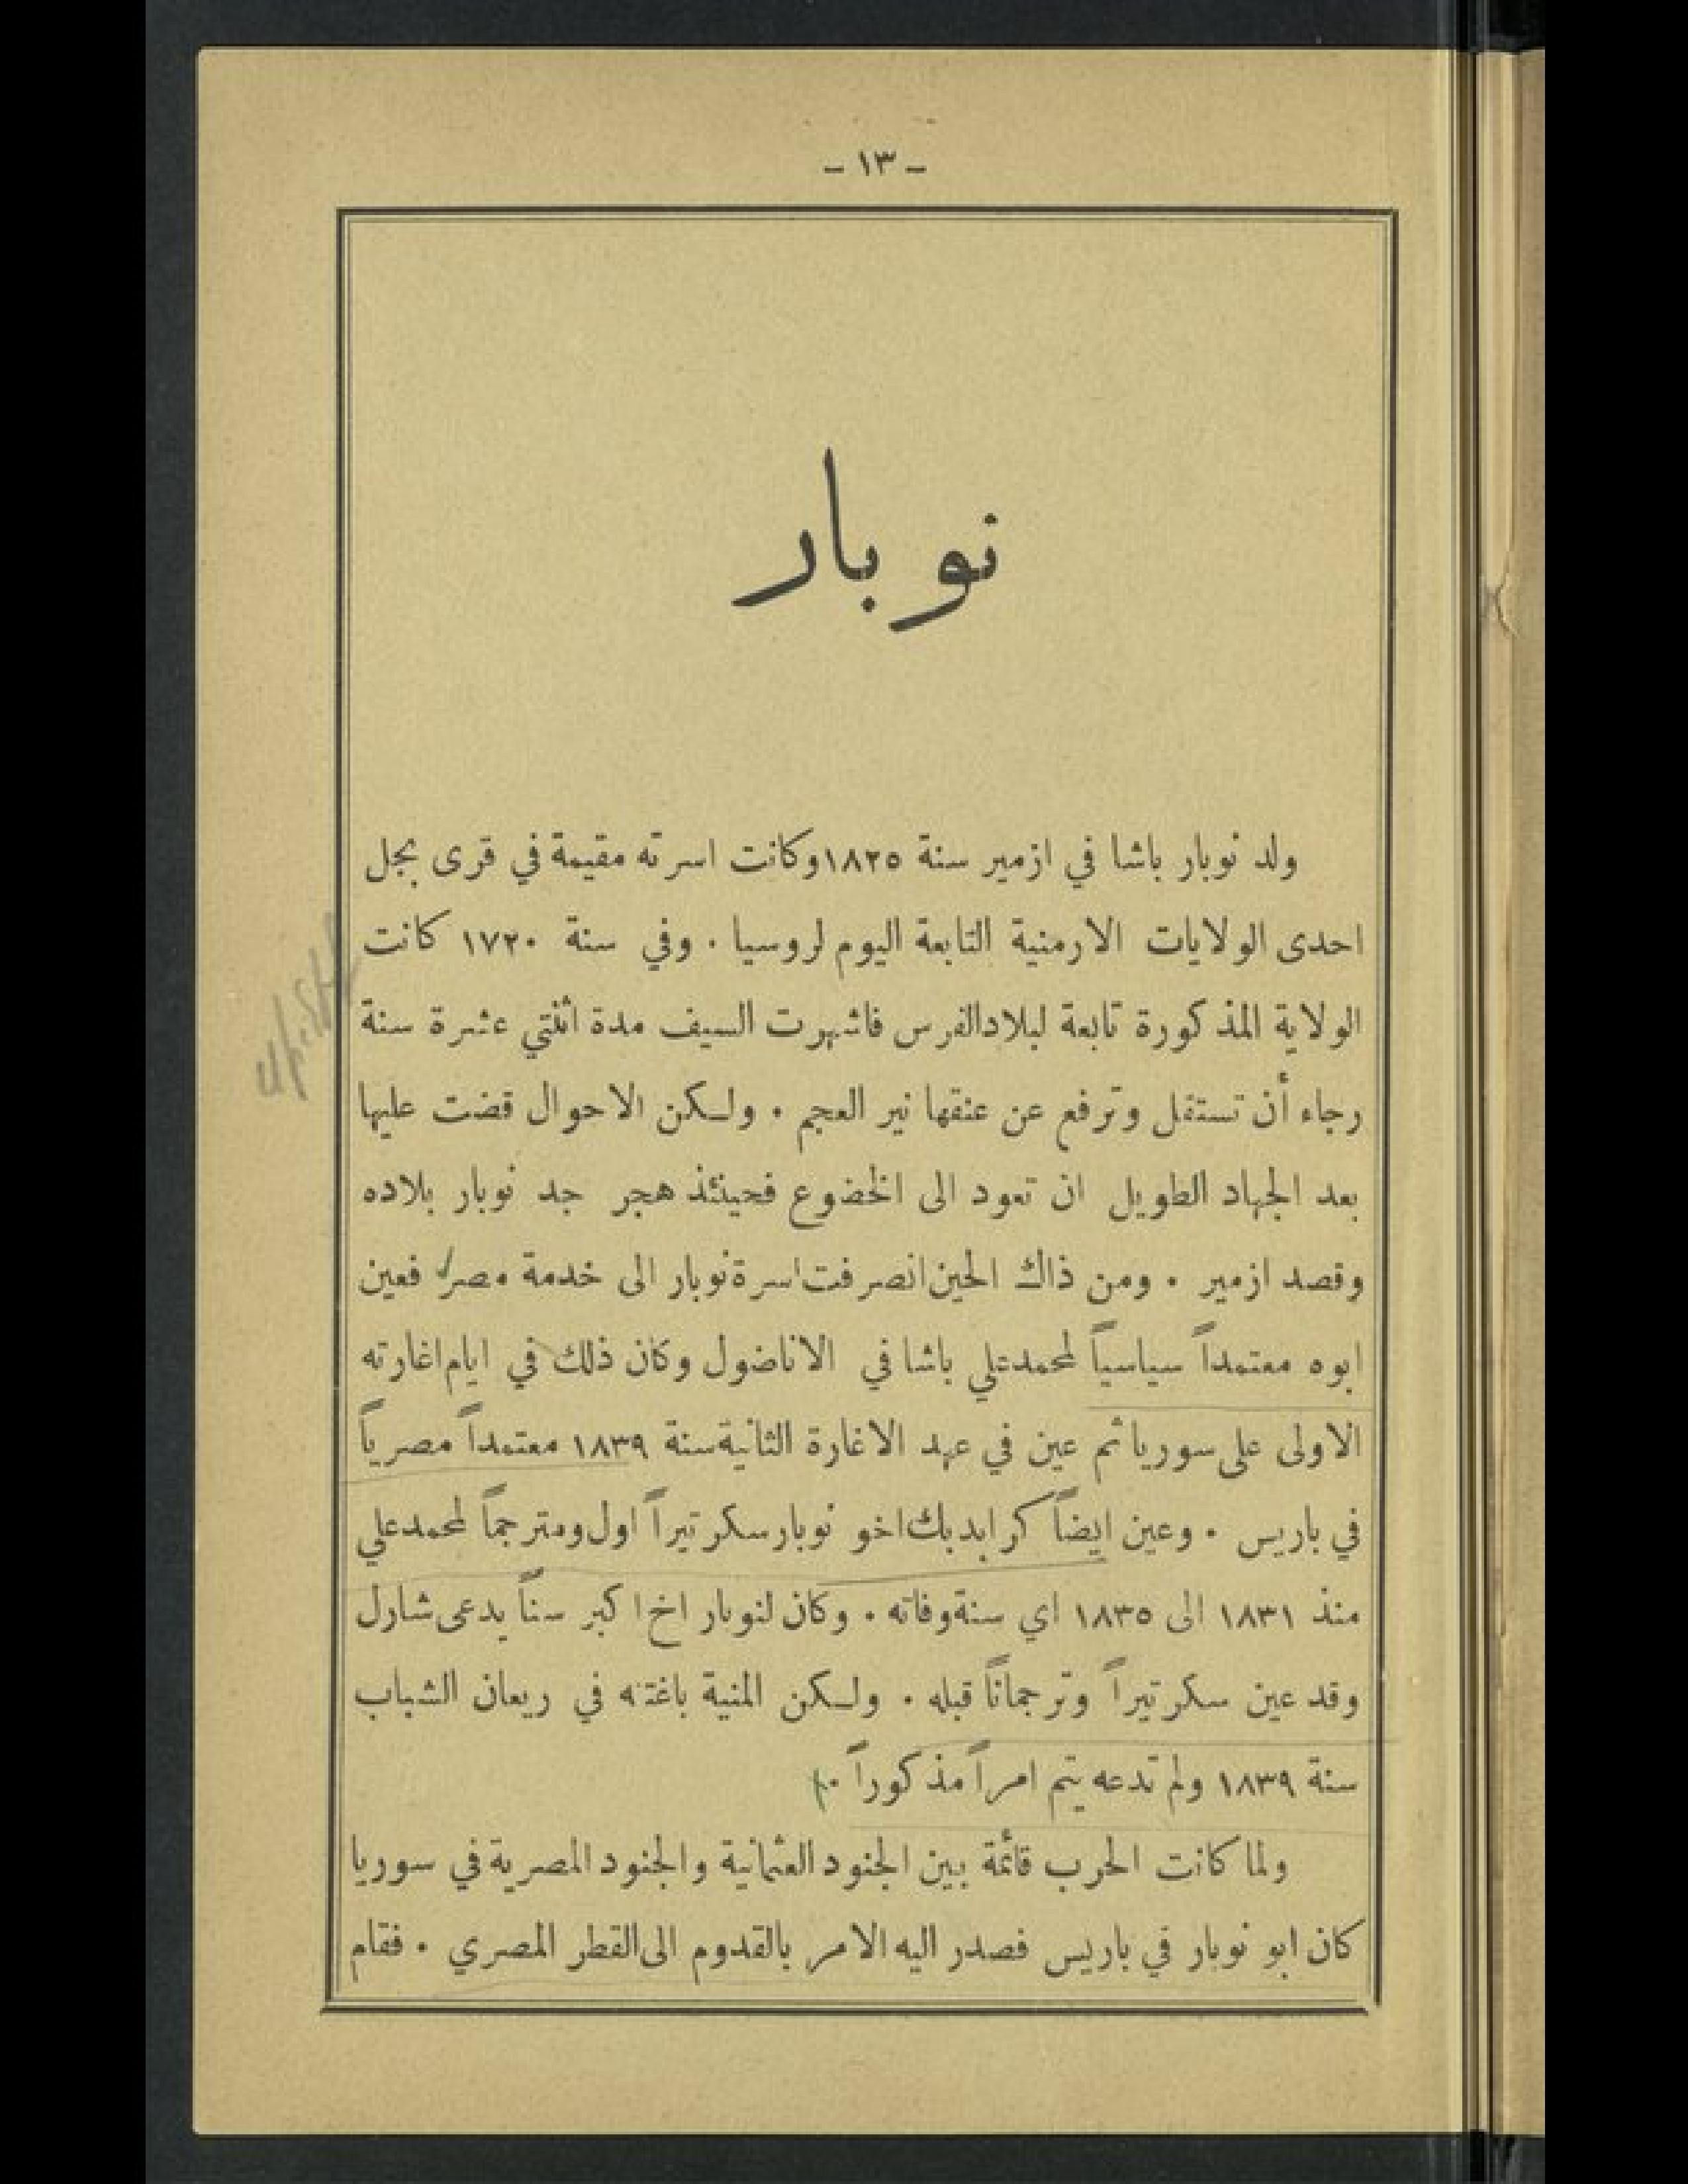 - ١٣ -
نوبار
ولد نوبار باشا في ازمير سنة ١٨٢٥ وكانت اسرته مقيمة في قرى بجل
احدى الولايات الارمنية التابعة اليوم لروسيا . وفي سنة ١٧٢٠ كانت
الولاية المذكورة تابعة لبلاد الفرس فاشهرت السيف مدة اثنتي عشرة سنة
رجاء أن تستقل وترفع عن عنقها نير العجم . ولكن الاحوال قضت عليها
بعد الجهاد الطويل ان تعود الى الخضوع فحينئذ هجر جد نوبار بلاده
وقصد ازمير . ومن ذاك الحين انصرفت اسرة نوبار الى خدمة مصر فعين
ابوه معتمداً سياسياً لمحمد علي باشا في الاناضول وكان ذلك في ايام اغارته
الاولى على سوريا ثم عين في عهد الاغارة الثانية سنة ١٨٣٩ معتمداً مصرياً
في باريس . وعين ايضاً كرابد بك اخو نوبار سكرتيراً اول ومترجماً لمحمد علي
منذ ١٨٣١ الى ١٨٣٥ اي سنة وفاته . وكان لنوبار اخ اكبر سناً يدعى شارل
وقد عين سكرتيراً وترجماناً قبله . ولكن المنية باغتته في ريعان الشباب
سنة ١٨٣٩ ولم تدعه يتم امراً مذكوراً .
ولما كانت الحرب قائمة بين الجنود العثمانية والجنود المصرية في سوريا
كان ابو نوبار في باريس فصدر اليه الامر بالقدوم الى القطر المصري . فقام